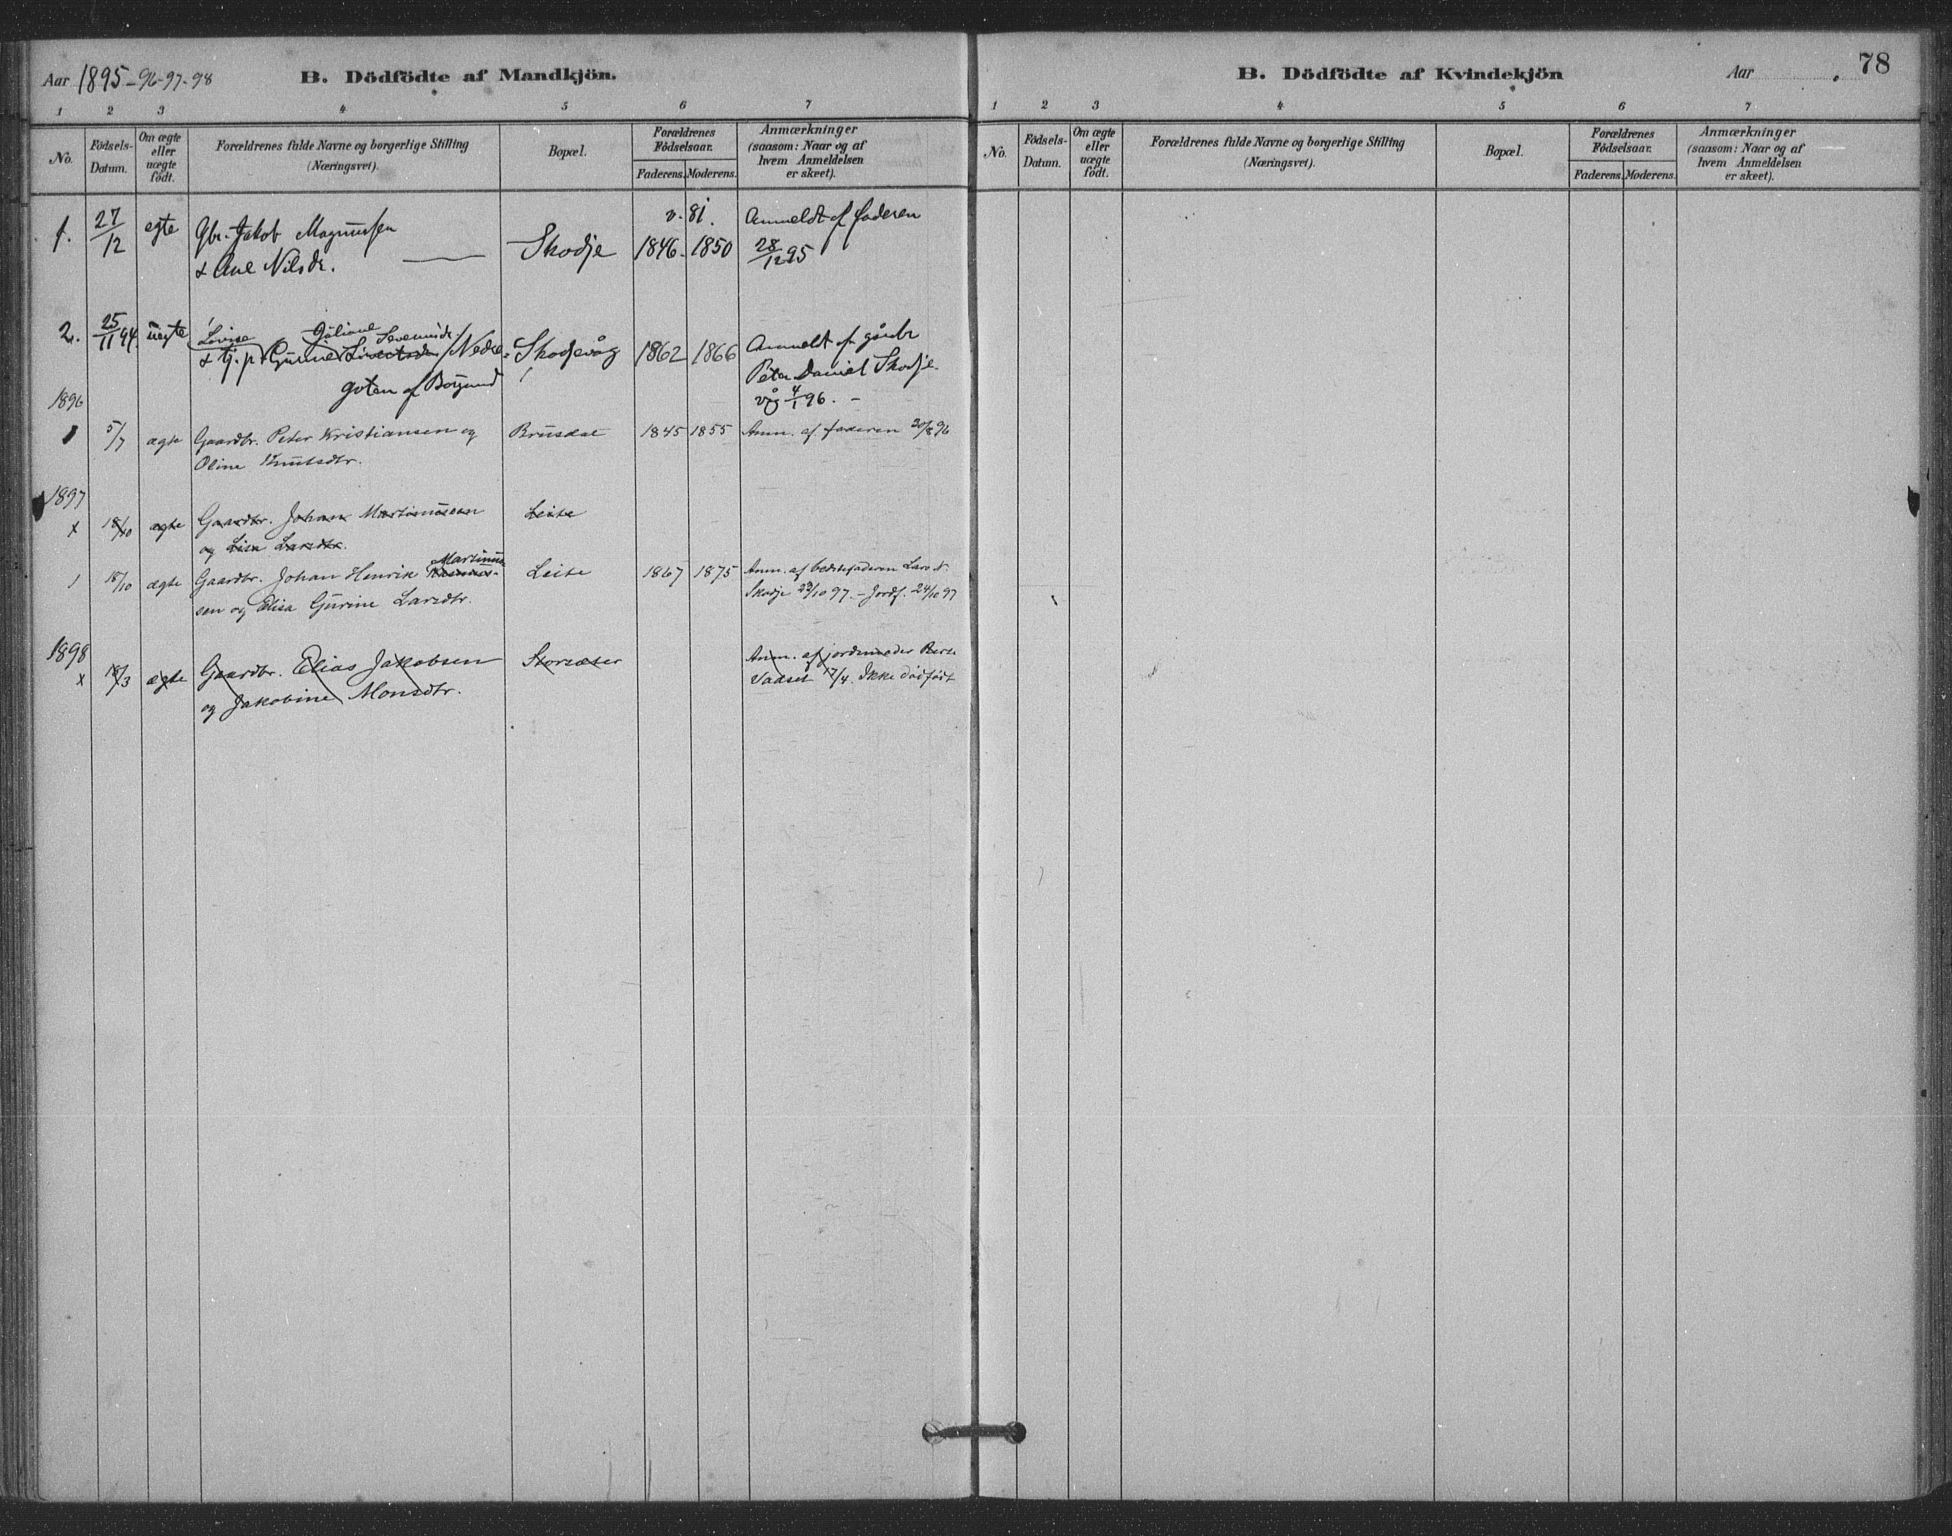 Aar 1895-96-97-98 B. Dödfödte af Mandkjön.
1 2 3 4 5 6 7
No.
Födsels-
Datum.
Om ægte
eller
uægte
födt.
Forældrenes fulde Navne og borgerlige Stilling
(Næringsvei).
Bopæl.
Forældrenes
Födselsaar.
Faderens. Moderens.
Anmærkninger
(saasom: Naar og af
hvem Anmeldelsen
er skeet).
1. 27/12 egte Gbr. Jakob Magnussen
& Ane Nilsdr.
Skodje
v. 81.
1846. 1850
Anmeldt af faderen
28/12 95
2. 25/11 94 uegte
Lovise Juliane Severinsdr.
& tj. p. Gurine / Nedre-
goten af Borgund
Skodjevåg 1862 1866
Anmeldt af gårdbr
Peter Daniel Skodje-
våg 4/1 96. -
1896
1 5/7 ægte Gaardbr. Peter Kristiansen og
Oline Knutsdtr.
Brusdal 1845 1855 Anm. af faderen 20/8 96
1897
x 18/10 ægte Gaardbr. Johan Martinussen
og Lisa Larsdtr.
Leite
1 18/10 ægte Gaardbr. Johan Henrik Martinus-
sen og Elisa Gurine Larsdtr.
Leite 1867 1875 Anm. af bedstefaderen Lars N.
Skodje 23/10 97. - Jordf. 24/10 97
1898
x 18/3 ægte Gaardbr. Elias Jakobsen
og Jakobine Monsdtr.
Storsæter
Anm. af jordemoder
17/4. Ikke dödfödt
B. Dödfödte af Kvindekjön Aar 78
1 2 3 4 5 6 7
No.
Födsels-
Datum.
Om ægte
eller
uægte
födt.
Forældrenes fulde Navne og borgerlige Stilling
(Næringsvei).
Bopæl.
Forældrenes
Födselsaar.
Faderens. Moderens.
Anmærkninger
(saasom: Naar og af
hvem Anmeldelsen
er skeet).